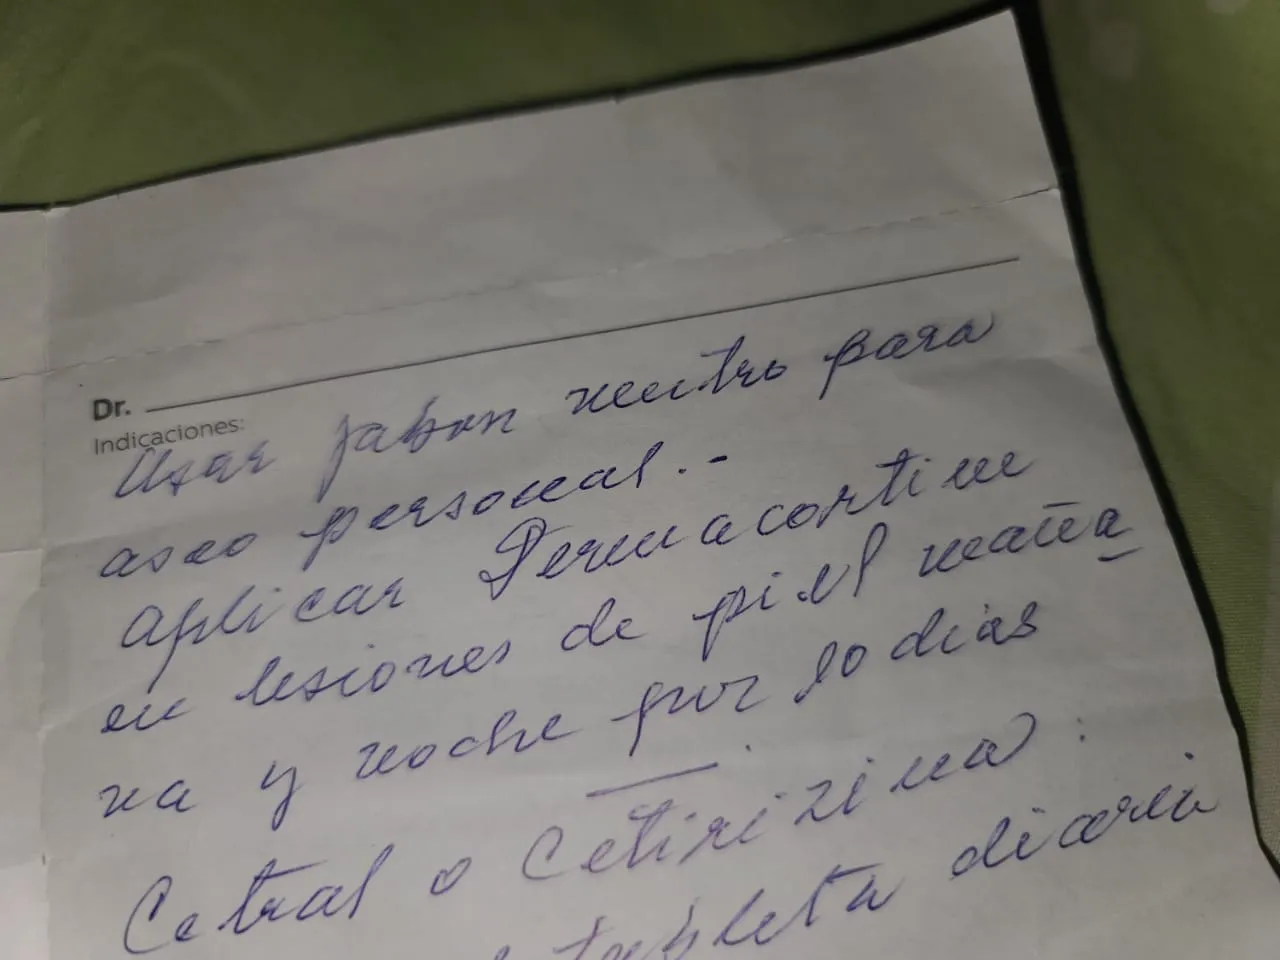 Dr.
Indicaciones:
Usar jabon neutro para
aseo personal.-
aplicar Dermacortine
en lesiones de piel maña
na y noche por 10 dias
Cetral o Cetirizina:
tableta diaria